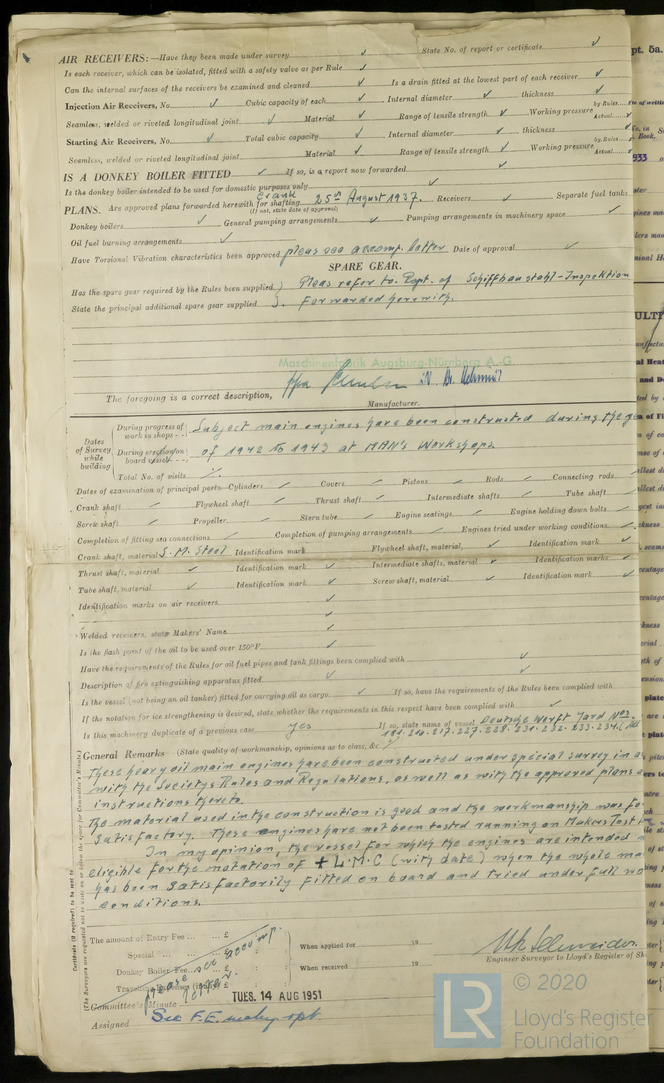 AIR RECEIVERS:—Have they been made under survey ✓ State No. of report or certificate ✓
Is each receiver, which can be isolated, fitted with a safety valve as per Rule ✓
Can the internal surfaces of the receivers be examined and cleaned ✓ Is a drain fitted at the lowest part of each receiver ✓
Injection Air Receivers, No. ✓ Cubic capacity of each ✓ Internal diameter ✓ thickness ✓
Seamless, welded or riveted longitudinal joint ✓ Material ✓ Range of tensile strength ✓ Working pressure by Rules Actual ✓
Starting Air Receivers, No. ✓ Total cubic capacity ✓ Internal diameter ✓ thickness ✓
Seamless, welded or riveted longitudinal joint Material ✓ Range of tensile strength ✓ Working pressure by Rules Actual ✓
IS A DONKEY BOILER FITTED ✓ If so, is a report now forwarded ✓
Is the donkey boiler intended to be used for domestic purposes only ✓
PLANS. Are approved plans forwarded herewith for shafting Crank 25th August 1937. Receivers ✓ Separate fuel tanks
(If not, state date of approval)
Donkey boilers ✓ General pumping arrangements ✓ Pumping arrangements in machinery space ✓
Oil fuel burning arrangements ✓
Have Torsional Vibration characteristics been approved pleas see accomp. letter Date of approval ✓
SPARE GEAR.
Has the spare gear required by the Rules been supplied ) Pleas refer to Rept. of Schiffbaustahl-Inspektion
State the principal additional spare gear supplied ). forwarded herewith.
Maschinenfabrik Augsburg-Nürnberg A.-G.
The foregoing is a correct description,
Manufacturer.
Dates of Survey while building
During progress of work in shops - - Subject main engines have been constructed during the
During erection on board vessel - - of 1942 to 1943 at MAN's Workshops.
Total No. of visits
Dates of examination of principal parts—Cylinders ✓ Covers ✓ Pistons ✓ Rods ✓ Connecting rods
Crank shaft ✓ Flywheel shaft ✓ Thrust shaft ✓ Intermediate shafts ✓ Tube shaft ✓
Screw shaft ✓ Propeller ✓ Stern tube ✓ Engine seatings ✓ Engine holding down bolts ✓
Completion of fitting sea connections ✓ Completion of pumping arrangements ✓ Engines tried under working conditions ✓
Crank shaft, material S. M. Steel Identification mark Flywheel shaft, material, ✓ Identification mark ✓
Thrust shaft, material ✓ Identification mark ✓ Intermediate shafts, material ✓ Identification marks ✓
Tube shaft, material ✓ Identification mark ✓ Screw shaft, material ✓ Identification mark ✓
Identification marks on air receivers ✓
Welded receivers, state Makers' Name ✓
Is the flash point of the oil to be used over 150°F ✓
Have the requirements of the Rules for oil fuel pipes and tank fittings been complied with ✓
Description of fire extinguishing apparatus fitted ✓ ✓
Is the vessel (not being an oil tanker) fitted for carrying oil as cargo ✓ If so, have the requirements of the Rules been complied with
If the notation for ice strengthening is desired, state whether the requirements in this respect have been complied with ✓
Is this machinery duplicate of a previous case yes If so, state name of vessel Deutsche Werft Yard Nos.
General Remarks (State quality of workmanship, opinions as to class, &c.
These heavy oil main engines have been constructed under special survey in
with the Societys Rules and Regulations, as well as with the approved plans
instructions thereto.
The material used in the construction is good and the workmanship was
satisfactory. These engines have not been tested running on Makers Test
In my opinion, the vessel for which the engines are intended
eligible for the notation of + L.M.C (with date) when the whole
has been satisfactorily fitted on board and tried under full
conditions.
The amount of Entry Fee ... £
Special ... £
Donkey Boiler Fee ... £
Travelling Expenses (if any) £
please see accomp. letter.
When applied for 19
When received 19
Engineer Surveyor to Lloyd's Register of
Committee's Minute TUES. 14 AUG 1951
Assigned See F.E. mchy rpt
Certificate (if required) to be sent to
(The Surveyors are requested not to write on or below the space for Committee's Minute.)
LR
© 2020
Lloyd's Register
Foundation